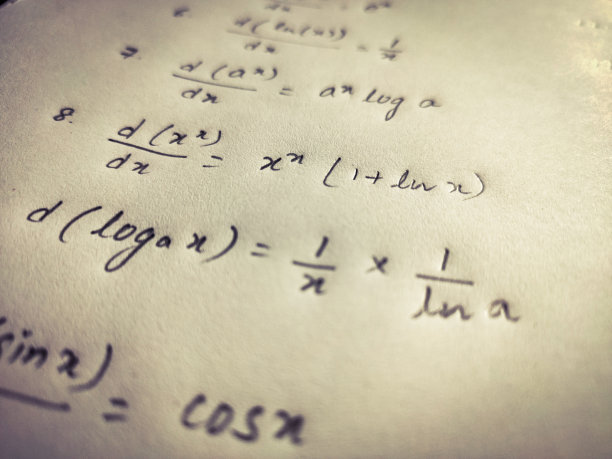 6. d(ln(x)) / dx = 1/x
7. d(aˣ) / dx = aˣ log a
8. d(xˣ) / dx = xˣ (1 + ln x)
d(logₐ x) = 1/x × 1/ln a
(sin x) = cos x